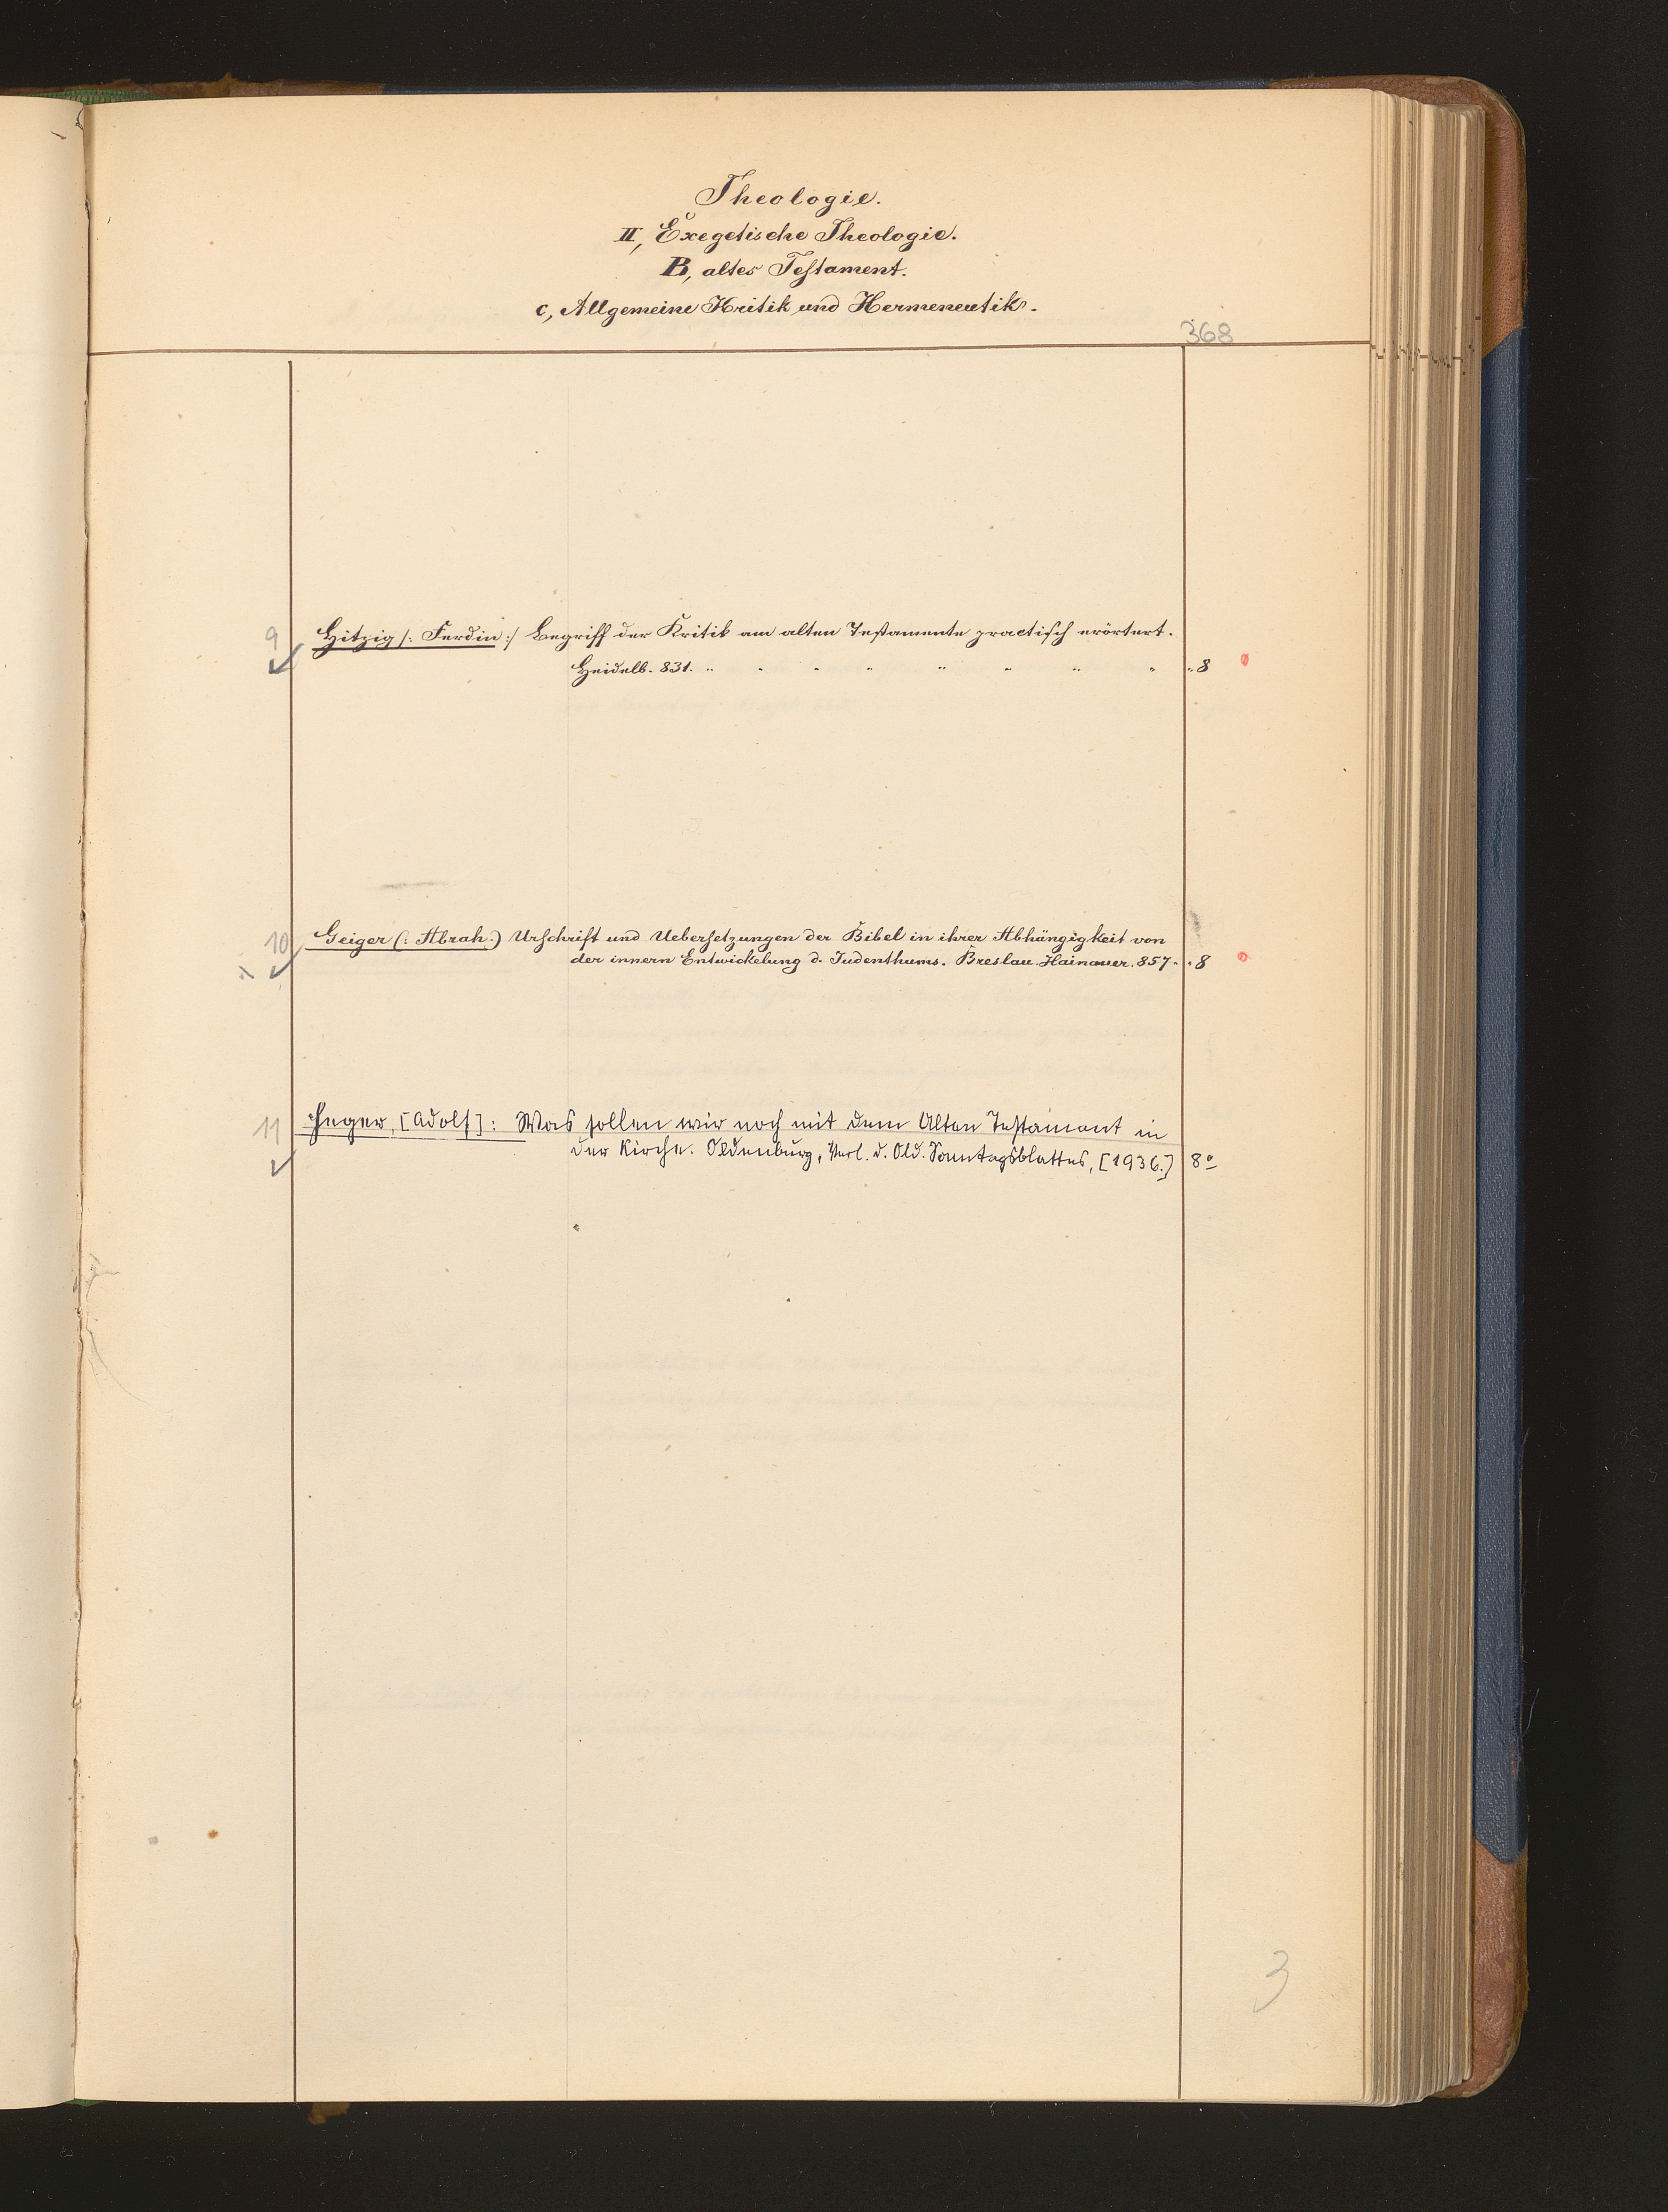 Theologie.
II, Exegetische Theologie.
B, altes Testament.
c, Allgemeine Kritik und Hermeneutik.
368
9 Hitzig /: Ferdin :/ Begriff der Kritik am alten Testamente practisch erörtert.
Heidelb. 831. " " " " " " " " " 8
10 Geiger (: Abrah.) Urschrift und Uebersetzungen der Bibel in ihrer Abhängigkeit von
der innern Entwickelung d. Judenthums. Breslau. Hainauer. 857. " 8
11 Heger, [Adolf]: Was sollen wir noch mit dem Alten Testament in
der Kirche. Oldenburg, Verl. d. Old. Sonntagsblattes, [1936.] 8º
3